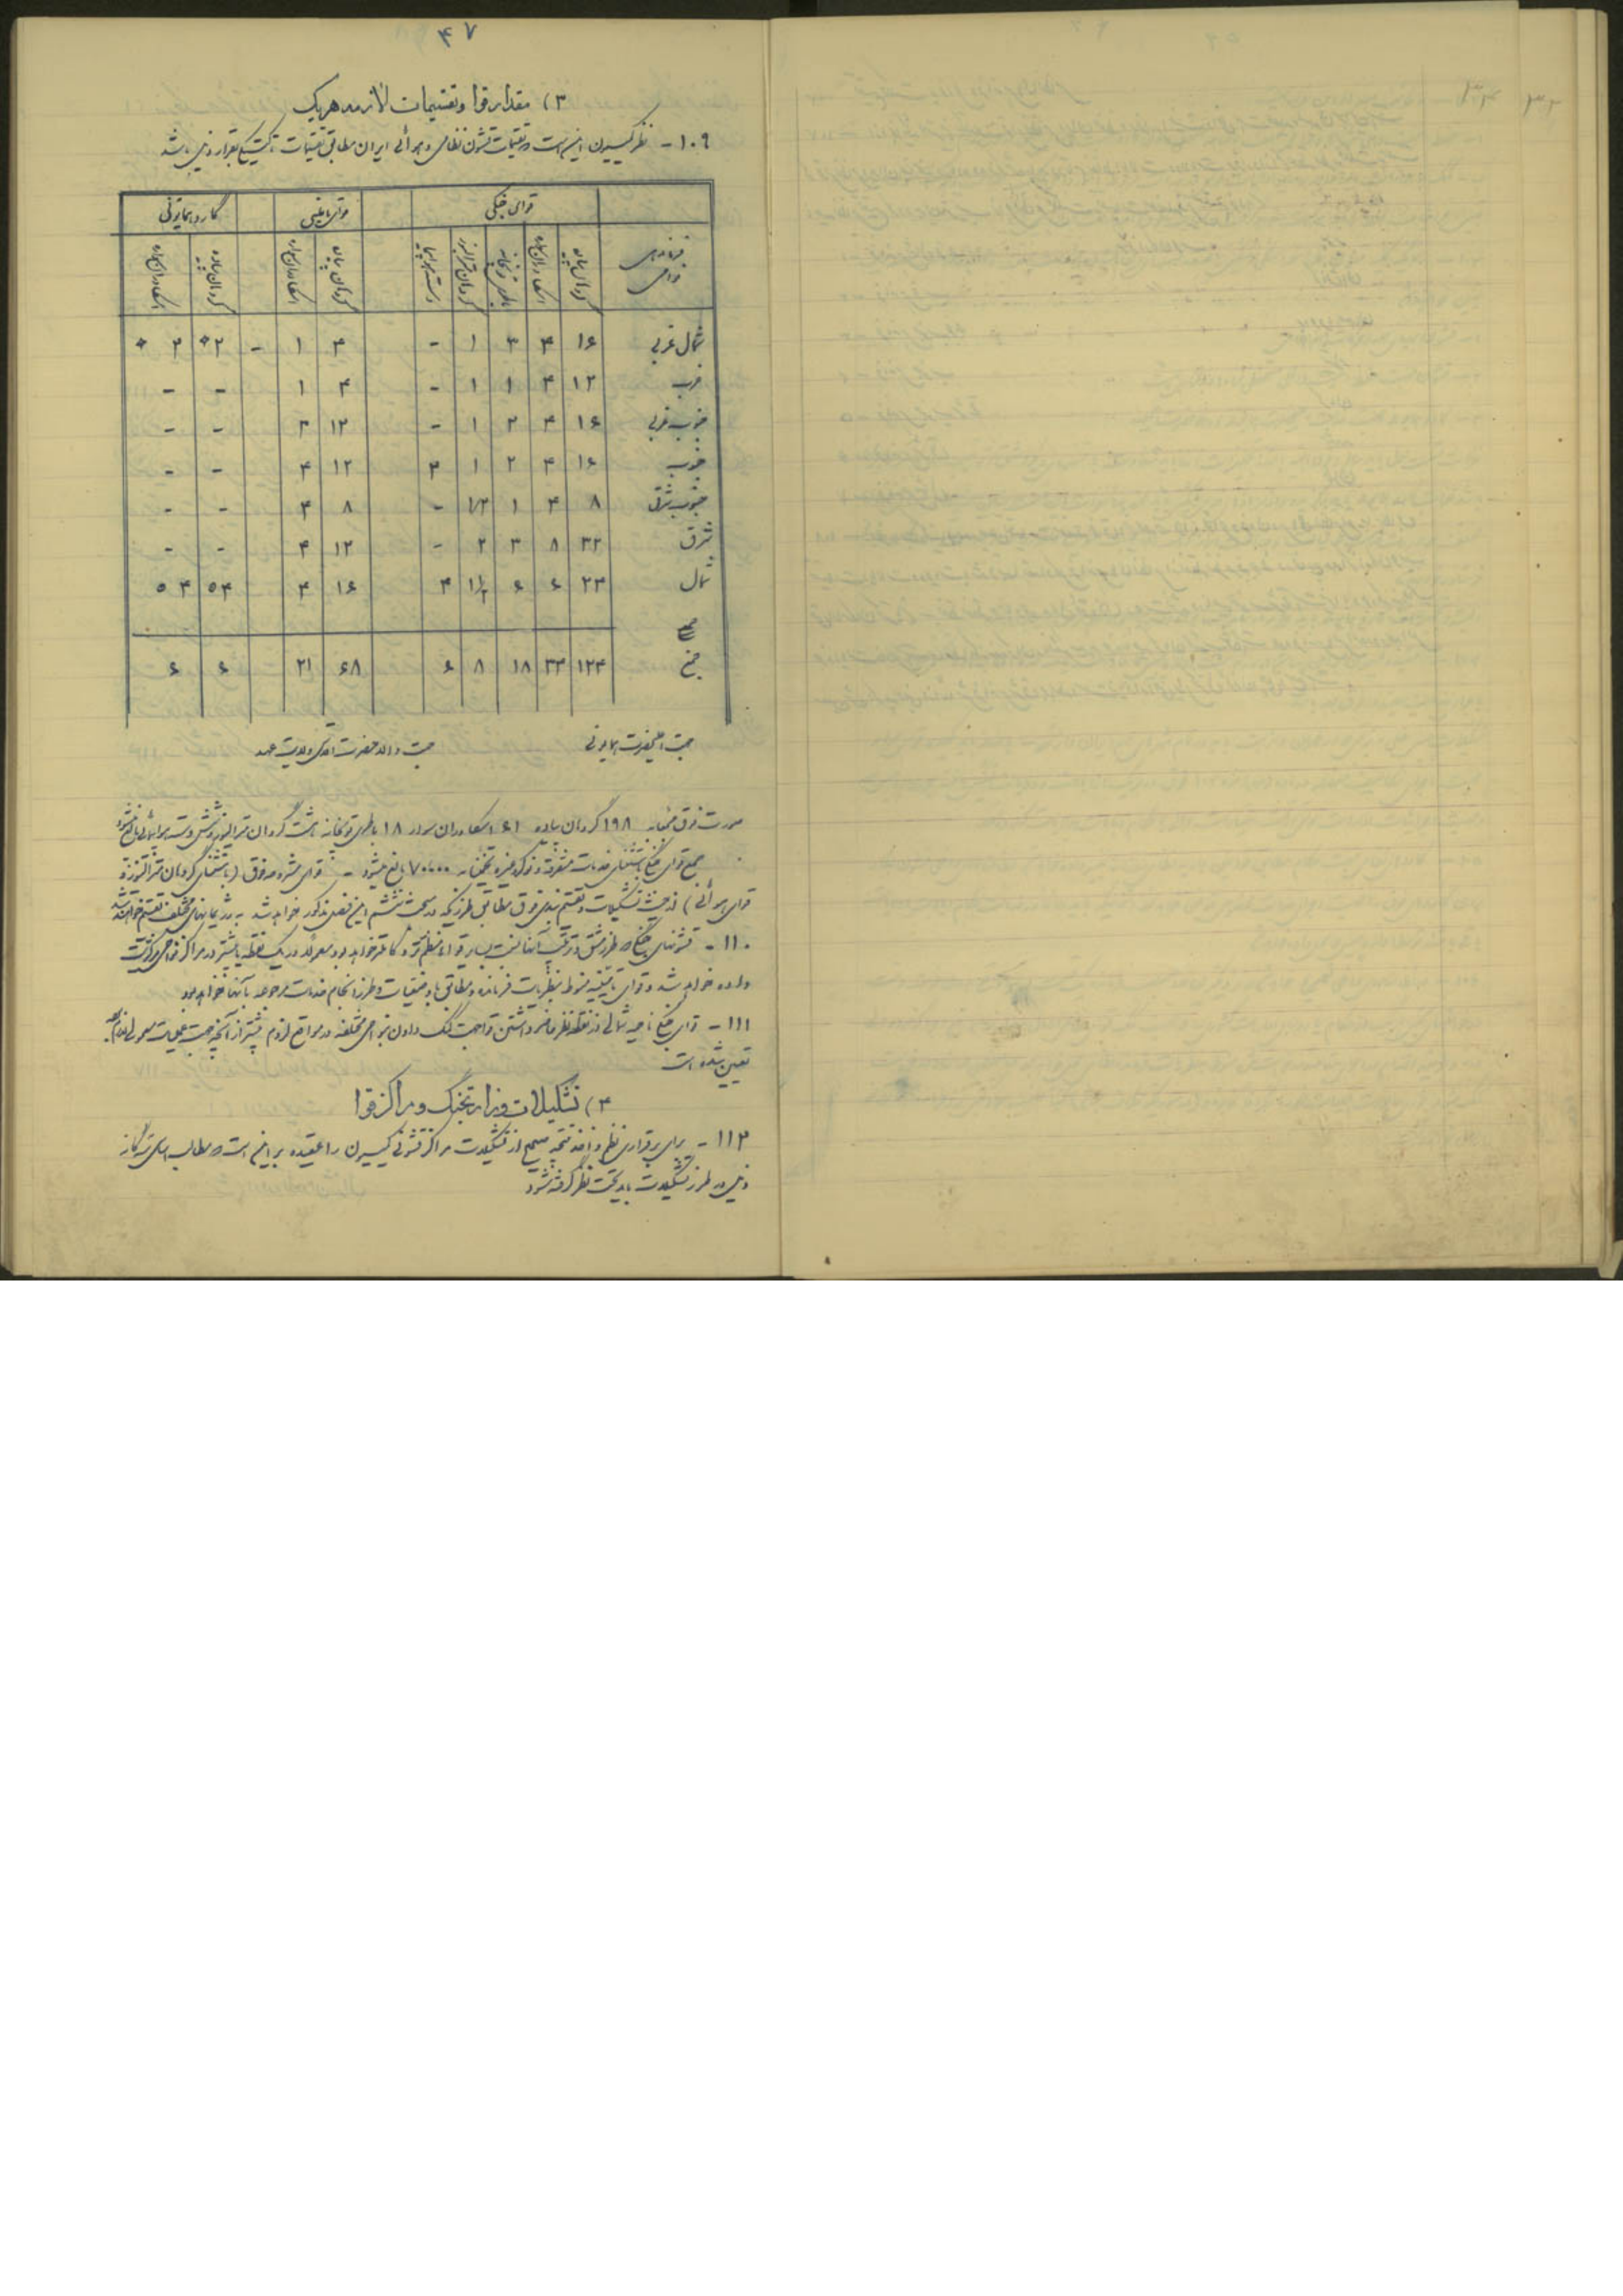 ۴۷
۳) مقدار قوا و تقسیمات لازمه هر یک
۱۰۹ - نظر کمیسیون این است که تقسیمات قشون نظامی و هوائی ایران مطابق تقسیمات تاکتیکی بقرار ذیل باشد
قوای جنگی قوای تامینی گارد همایونی
فرماندهی نواحی گردان پیاده اسکادران سواره باطری توپخانه گردان مترالیوز دسته هواپیما گردان پیاده اسکادران سواره گردان پیاده اسکادران سواره
شمال غربی ۱۶ ۴ ۳ ۱ - ۴ ۱ - ۲* ۲ *
غرب ۱۲ ۴ ۱ ۱ - ۴ ۱ - -
جنوب غربی ۱۶ ۴ ۲ ۱ - ۱۲ ۳ - -
جنوب ۱۶ ۴ ۲ ۱ ۲ ۱۲ ۴ - -
جنوب شرقی ۸ ۴ ۱ ۱/۲ - ۸ ۴ - -
شرق ۳۲ ۸ ۳ ۲ - ۱۲ ۴ - -
شمال ۲۴ ۶ ۶ ۱ ۱/۲ ۴ ۱۶ ۴ ۴ ۵ ۴ ۵
جمع ۱۲۴ ۳۴ ۱۸ ۸ ۶ ۶۸ ۲۱ ۶ ۶
جهت اعلیحضرت همایونی جهت والاحضرت اقدس ولایت عهد
صورت فوق بمیزان ۱۹۸ گردان پیاده ۶۱ اسکادران سوار ۱۸ باطری توپخانه هشت گردان مترالیوز و شش دسته هواپیمائی بالغ میشود
جمع قوای جنگی باستثنای خدمات متفرقه و غیره تخمیناً به ۷۰۰۰۰ بالغ میشود - قوای مشروحه فوق (باستثنای گردان مترالیوز و
قوای هوائی) از حیث تشکیلات و تقسیم بندی فوق مطابق طرزیکه در مبحث ششم این فصل مذکور خواهد شد به رژیمانهای مختلف تقسیم خواهند شد
۱۱۰ - قشونهای جنگی که طرز مشق و تربیت آنها نسبت بسایر قوا منظم تر و کاملتر خواهد بود معمولا در یک نقطه یا بیشتر در مراکز نواحی مرکزیت
داده خواهد شد و قوای تامینیه منوط بنظریات فرمانده و مطابق با وضعیات و طرز انجام خدمات مرجوعه بآنها خواهد بود
۱۱۱ - قوای جنگی ناحیه شمالی از نقطه نظر حاضر داشتن قوا جهت کمک دادن بنواحی مختلفه در مواقع لزوم بیشتر از آنچه جهت عملیات معمولی لازم است
تعیین شده است
۴) تشکیلات وزارت جنگ و مراکز قوا
۱۱۲ - برای برقراری نظم و اخذ نتیجه صحیح از تشکیلات مراکز قشونی کمیسیون را عقیده بر این است که مطالب اساسی سه گانه
ذیل در طرز تشکیلات باید تحت نظر گرفته شود